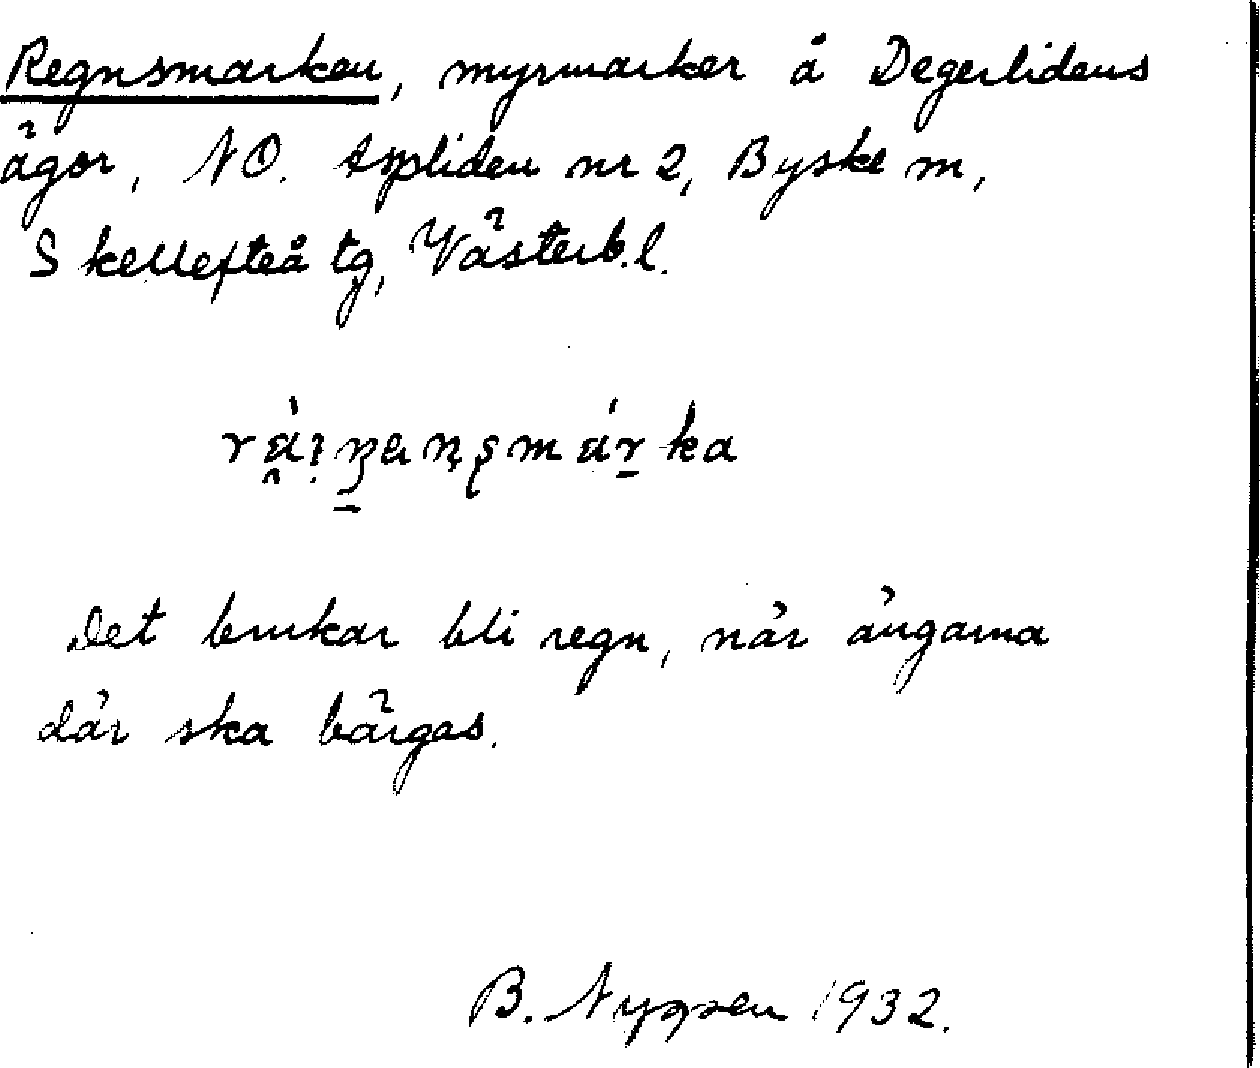 Regnsmarken, myrmarker å Degerlidens
ägor, NO. Aspliden nr 2, Byske m,
Skellefteå tg, Västerb.l.
Det brukar bli regn, när ängarna
där ska bärgas.
B. 1932.